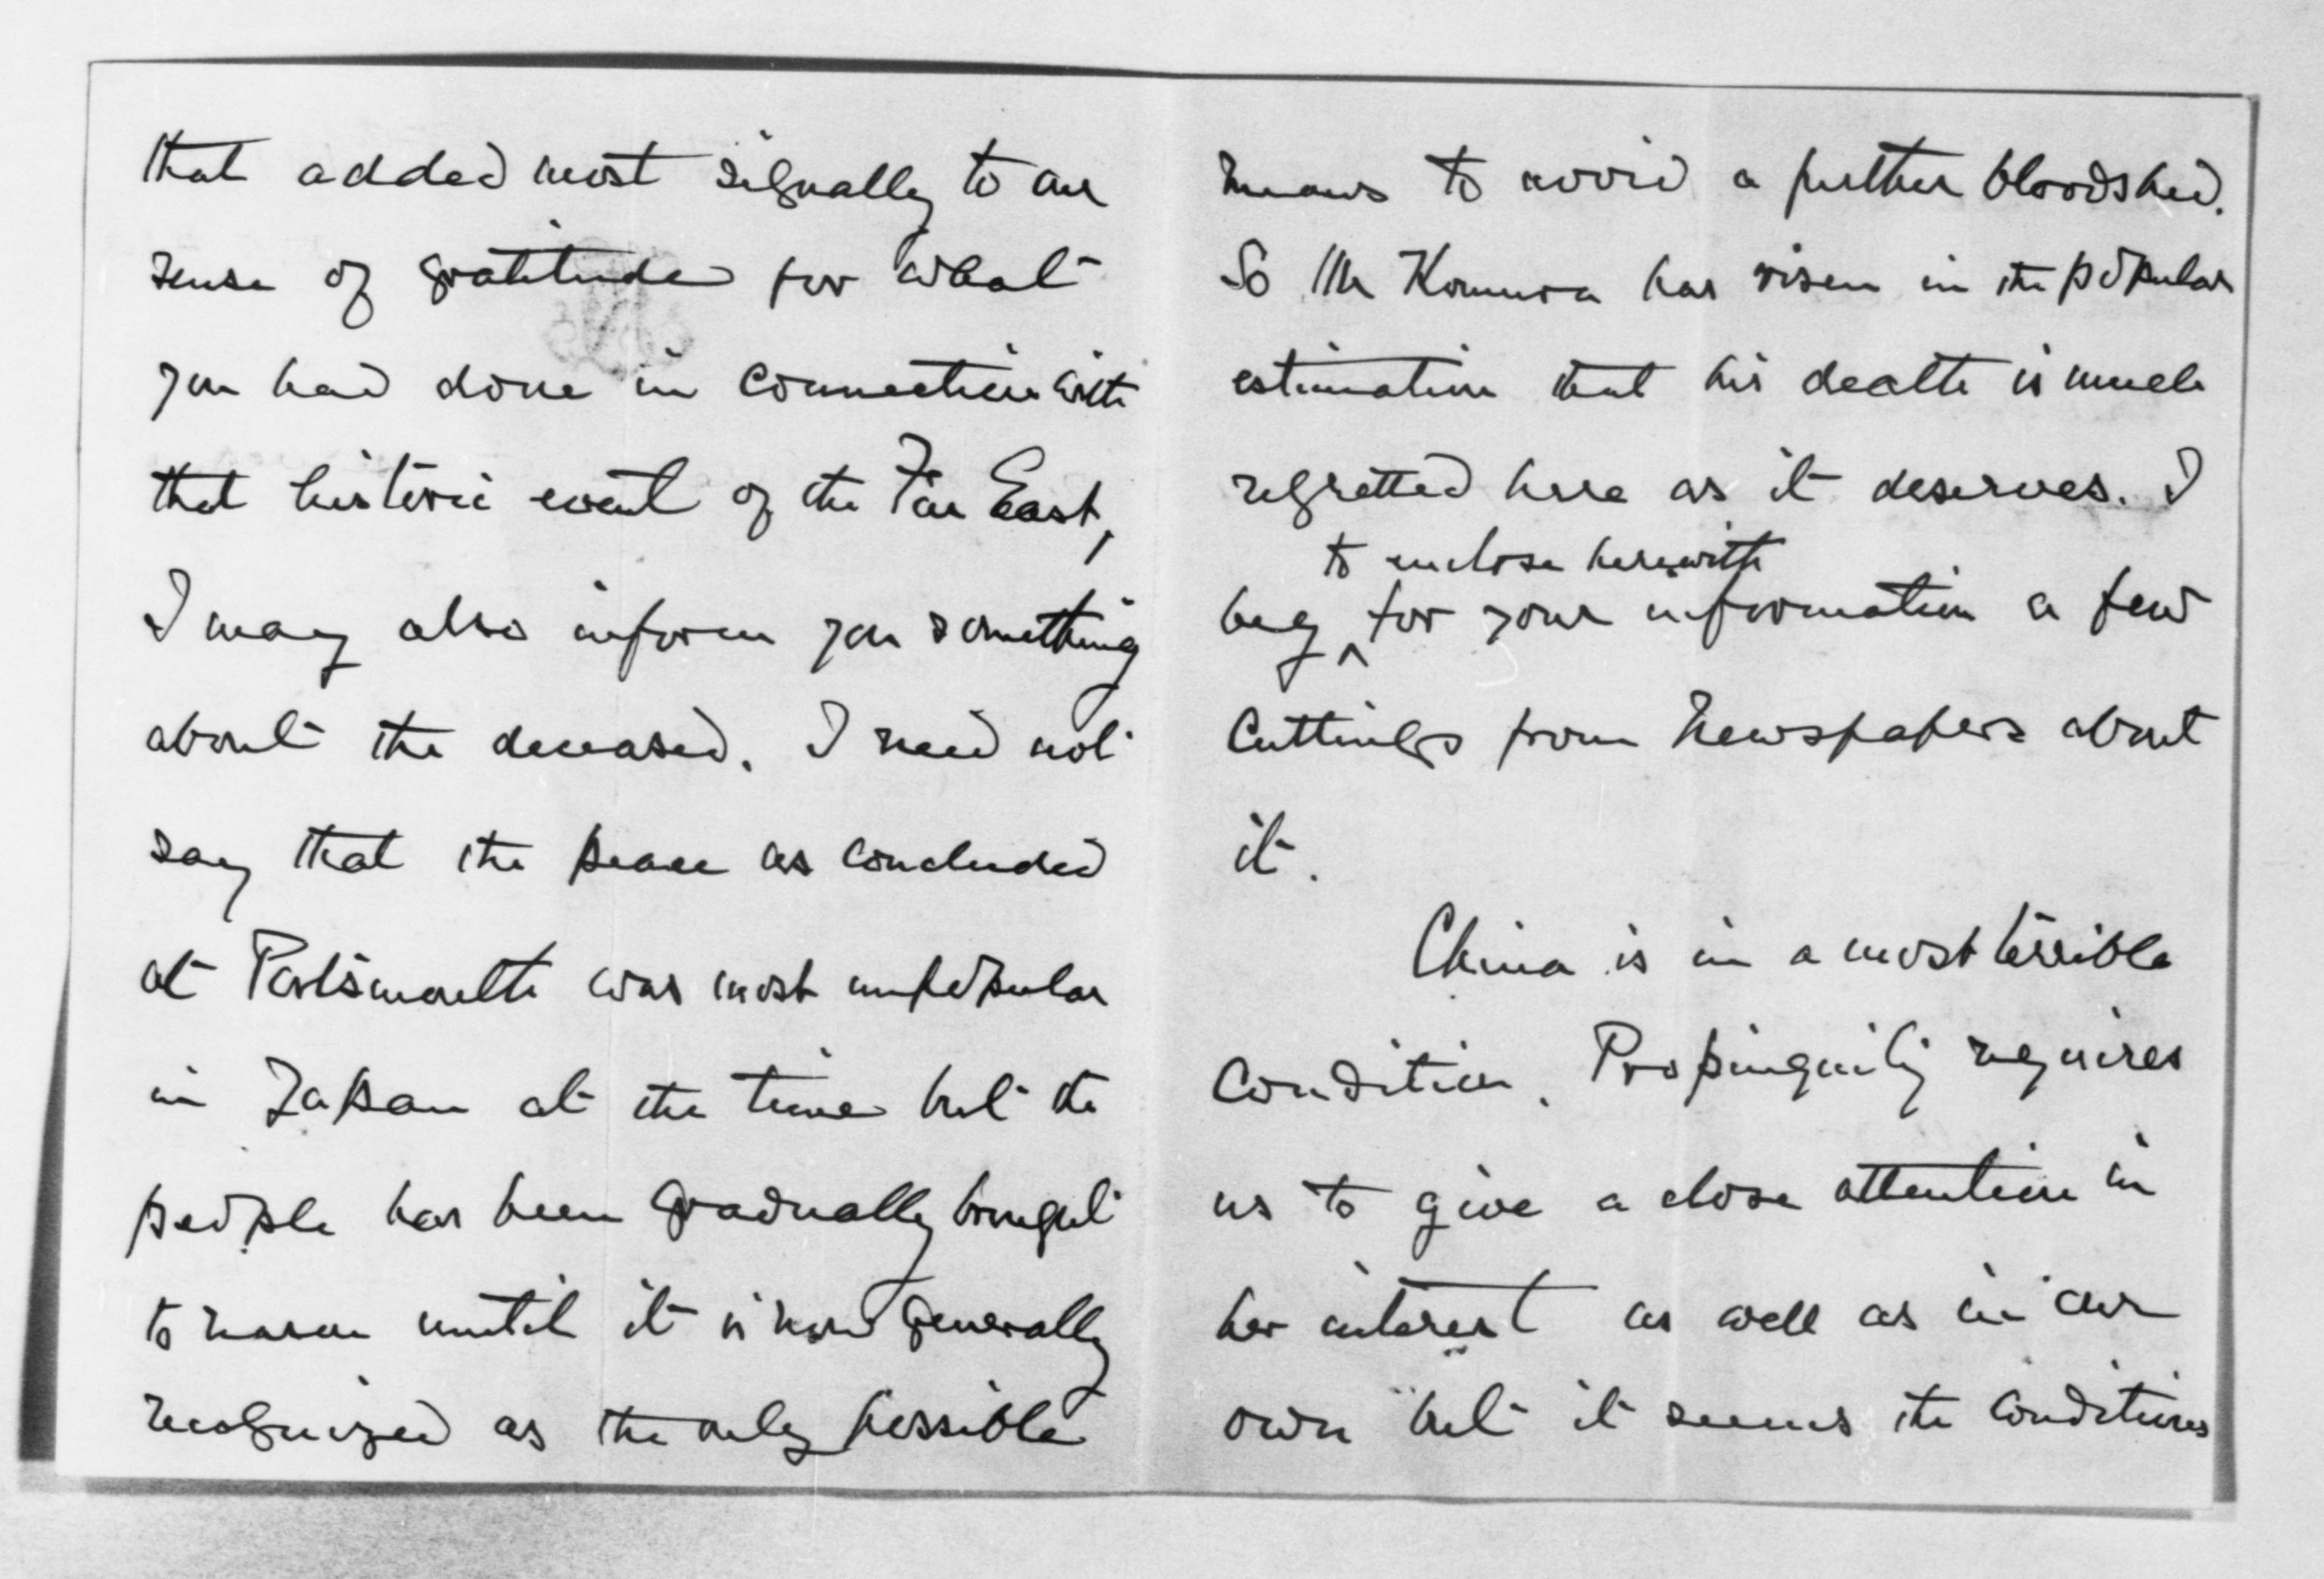 that added most signally to our
sense of gratitude for what
you had done in connection with
that historic event of the Far East,
I may also inform you something
about the deceased. I need not
say that the peace as concluded
at Portsmouth was most unpopular
in Japan at the time but the
people has been gradually brought
to reason until it is now generally
recognized as the only possible
means to avoid a further bloodshed.
So Mr Komura has risen in the popular
estimation that his death is much
regretted here as it deserves. I
to enclose herewith
beg ^ for your information a few
cuttings from newspapers about
it.
China is in a most terrible
condition. Propinquity requires
us to give a close attention in
her interest as well as in our
own but it seems the conditions